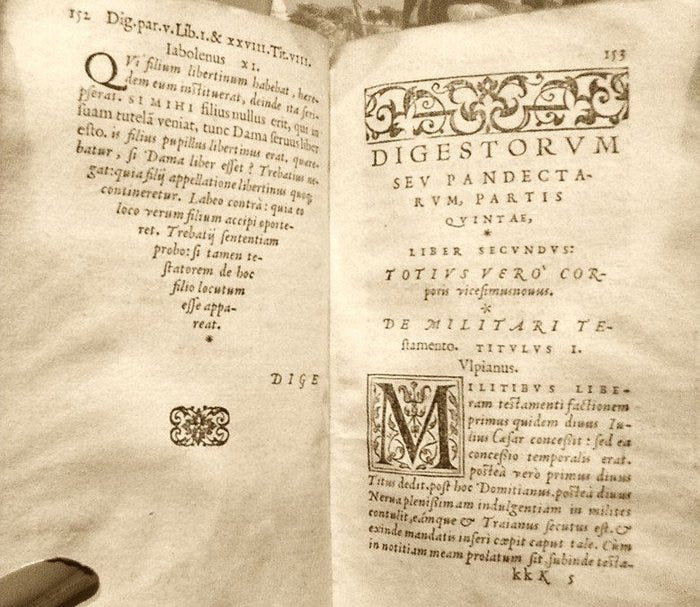 152 Dig. par. v. Lib. I. & XXVIII. Tit. VIII.
Iabolenus XI.
QVi filium libertinum habebat, here-
dem eum instituerat, deinde ita scri-
pserat. SI MIHI filius nullus erit, qui in
suam tutelã veniat, tunc Dama seruus liber
esto. is filius pupillus libertinus erat. quære-
batur, si Dama liber esset? Trebatius ne-
gat: quia filij appellatione libertinus quoq;
contineretur. Labeo contrà: quia eo
loco verum filium accipi oporte-
ret. Trebatij sententiam
probo: si tamen te-
statorem de hoc
filio locutum
esse appa-
reat.
*
DIGE
153
DIGESTORVM
SEV PANDECTA-
RVM, PARTIS
QVINTAE,
*
LIBER SECVNDVS:
TOTIVS VERÒ COR-
poris vicesimusnonus.
*
DE MILITARI TE-
stamento. TITVLVS I.
Vlpianus.
MILITIBVS LIBE-
ram testamenti factionem
primus quidem diuus Iu-
lius Cæsar concessit: sed ea
concessio temporalis erat.
posteà verò primus diuus
Titus dedit. post hoc Domitianus. posteà diuus
Nerua plenissimam indulgentiam in milites
contulit, eámque & Traianus secutus est. &
exinde mandatis inseri cœpit caput tale. Cùm
in notitiam meam prolatum sit, subinde testa-
kkK 5